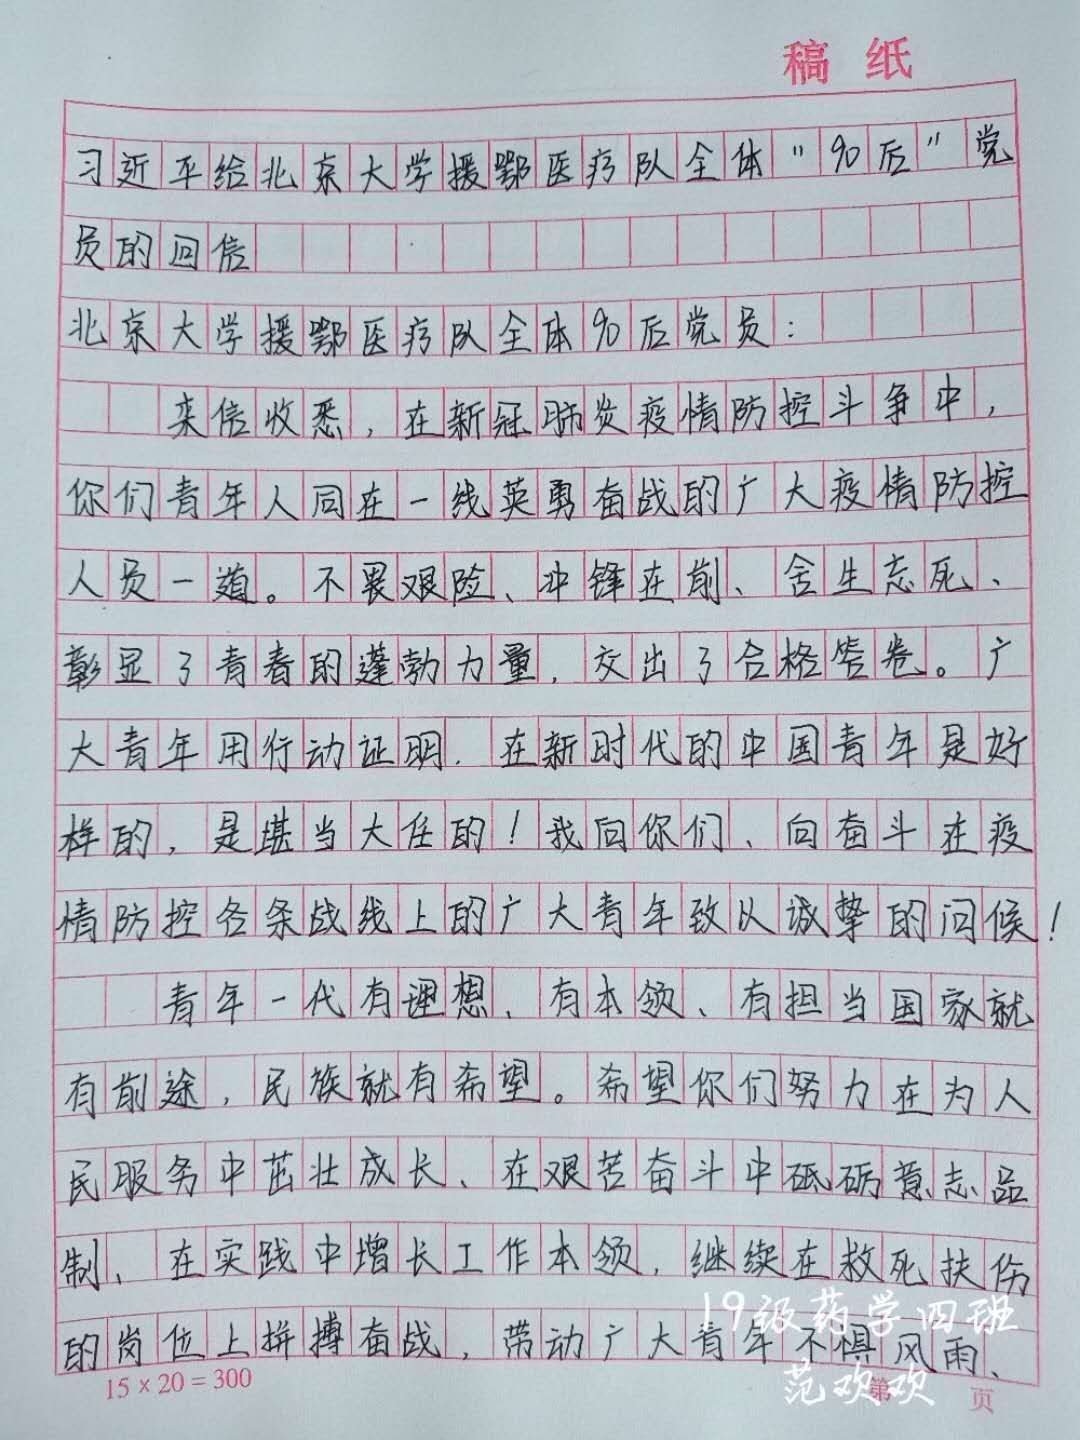 稿纸
习近平给北京大学援鄂医疗队全体“90后”党
员的回信
北京大学援鄂医疗队全体90后党员：
来信收悉，在新冠肺炎疫情防控斗争中，
你们青年人同在一线英勇奋战的广大疫情防控
人员一道。不畏艰险、冲锋在前、舍生忘死、
彰显了青春的蓬勃力量，交出了合格答卷。广
大青年用行动证明．在新时代的中国青年是好
样的，是堪当大任的！我向你们、向奋斗在疫
情防控各条战线上的广大青年致以诚挚的问候！
青年一代有理想、有本领、有担当国家就
有前途，民族就有希望。希望你们努力在为人
民服务中茁壮成长、在艰苦奋斗中砥砺意志品
制、在实践中增长工作本领．继续在救死扶伤
的岗位上拼搏奋战，带动广大青年不惧风雨、
15×20=300
第 页
19级药学四班
范欢欢